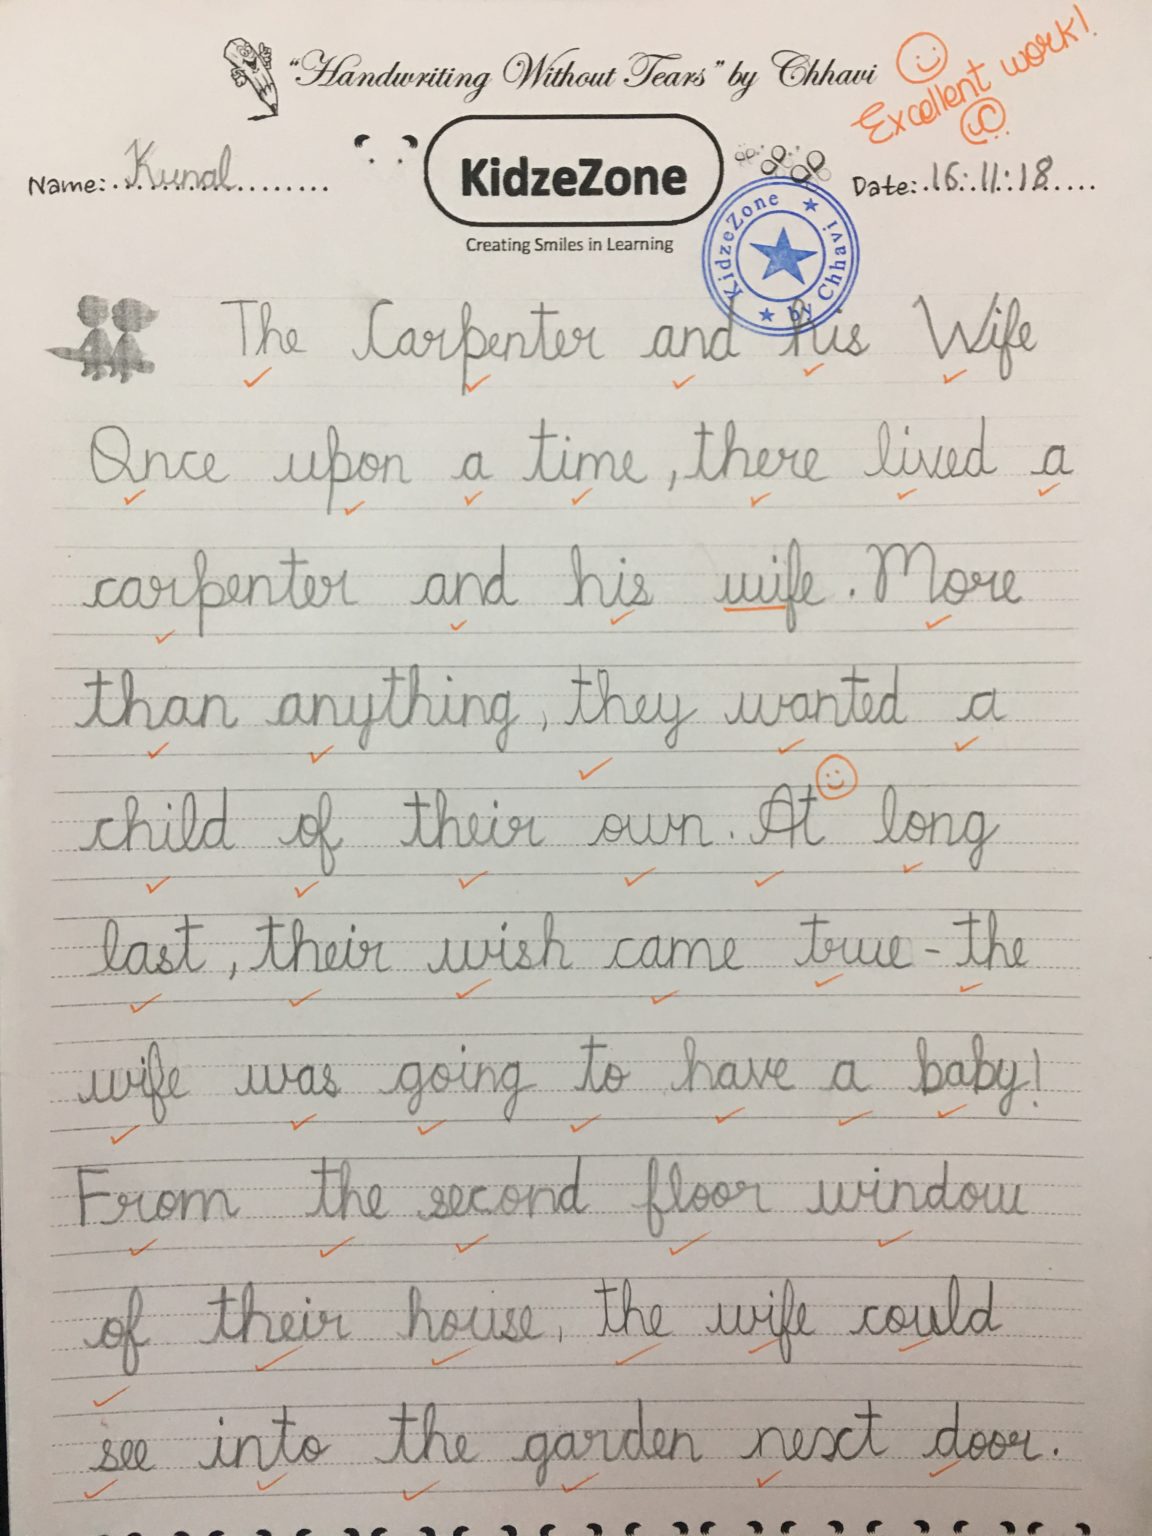 "Handwriting Without Tears" by Chhavi
Excellent work!
Name: Kunal
KidzeZone
Creating Smiles in Learning
Date: 16.11.18
KidzeZone ★ by Chhavi ★
The Carpenter and his Wife
Once upon a time, there lived a
carpenter and his wife. More
than anything, they wanted a
child of their own. At long
last, their wish came true - the
wife was going to have a baby!
From the second floor window
of their house, the wife could
see into the garden next door.